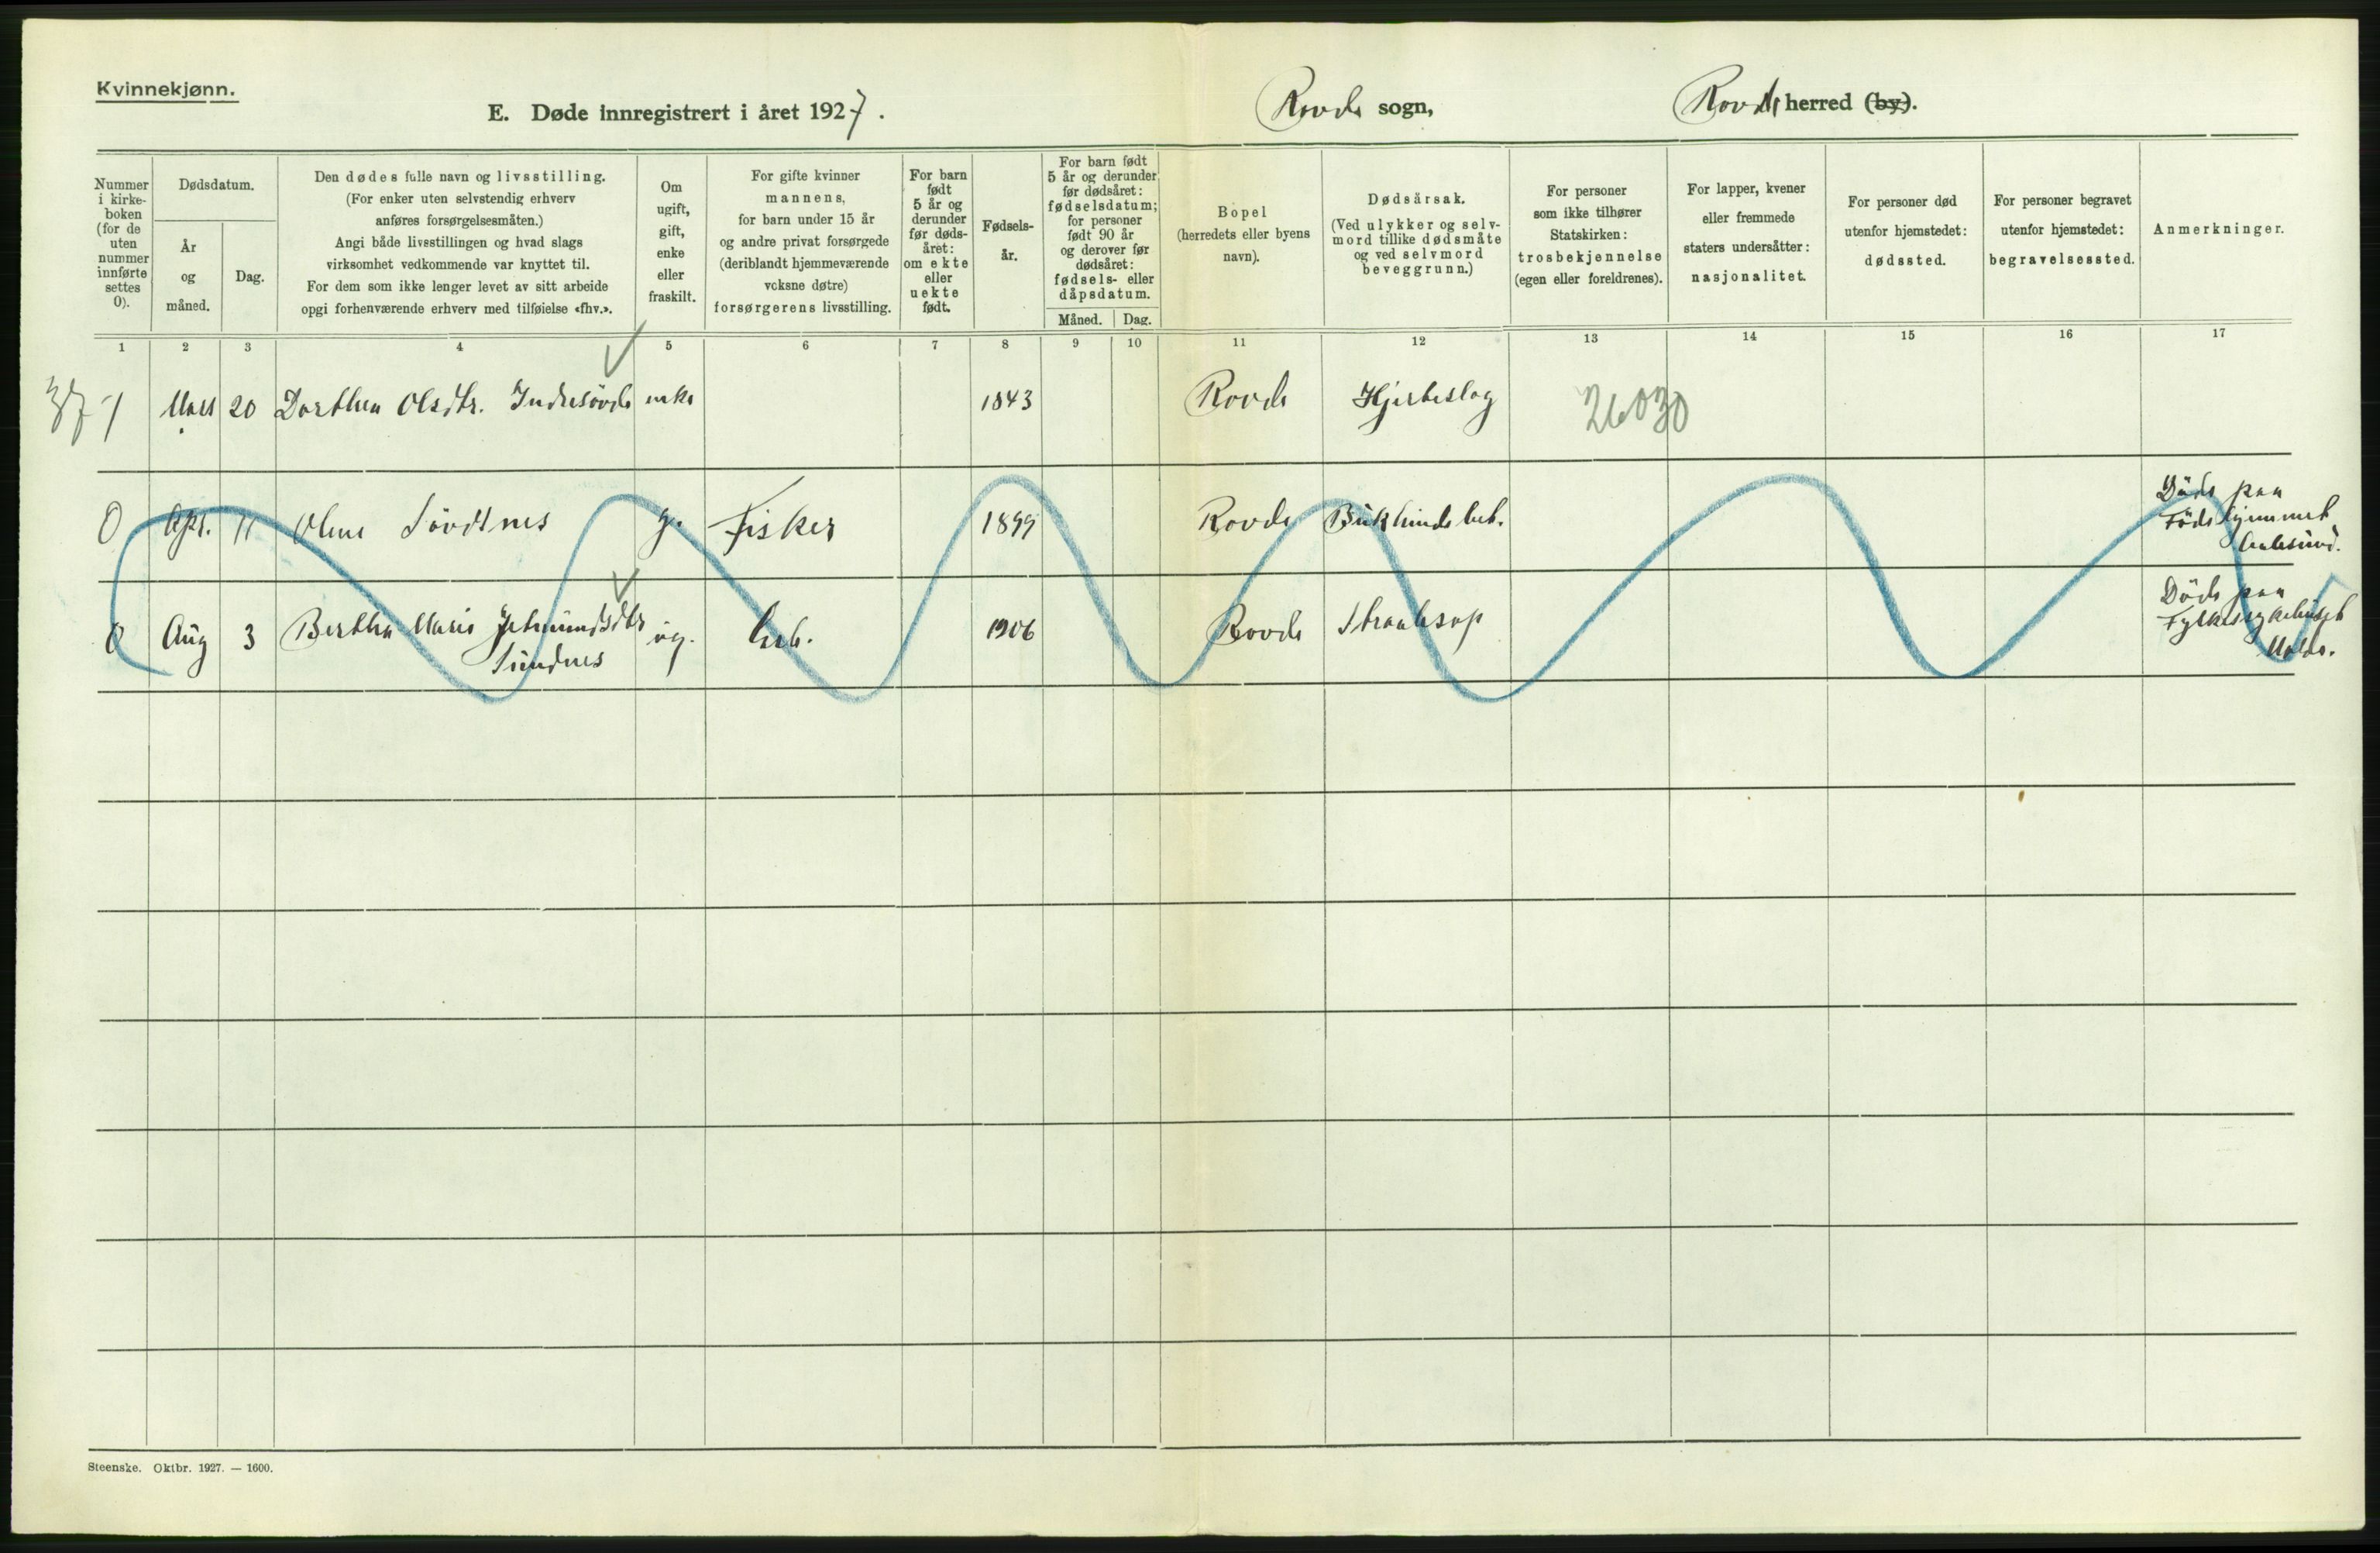 Kvinnekjønn.
E. Døde innregistrert i året 1927.
Rovde sogn,
Rovde herred (by).
Nummer i kirke- boken (for de uten nummer innførte settes 0).
Dødsdatum.
År og måned.
Dag.
Den dødes fulle navn og livsstilling.
(For enker uten selvstendig erhverv
anføres forsørgelsesmåten.)
Angi både livsstillingen og hvad slags
virksomhet vedkommende var knyttet til.
For dem som ikke lenger levet av sitt arbeide
opgi forhenværende erhverv med tilføielse «fhv.».
Om ugift, gift, enke eller fraskilt.
For gifte kvinner
mannens,
for barn under 15 år
og andre privat forsørgede
(deriblandt hjemmeværende
voksne døtre)
forsørgerens livsstilling.
For barn født 5 år og derunder før døds- året: om ekte eller uekte født.
Fødsels- år.
For barn født 5 år og derunder før dødsåret: fødselsdatum; for personer født 90 år og derover før dødsåret: fødsels- eller dåpsdatum.
Måned. Dag.
Bopel
(herredets eller byens
navn).
Dødsårsak.
(Ved ulykker og selv-
mord tillike dødsmåte
og ved selvmord
beveggrunn.)
For personer
som ikke tilhører
Statskirken:
trosbekjennelse
(egen eller foreldrenes).
For lapper, kvener
eller fremmede
staters undersåtter:
nasjonalitet.
For personer død
utenfor hjemstedet:
dødssted.
For personer begravet
utenfor hjemstedet:
begravelsessted.
Anmerkninger.
1 2 3 4 5 6 7 8 9 10 11 12 13 14 15 16 17
37 1 Mars 20 Dorthea Olsdtr. Indresövde enke 1843 Rovde Hjerteslag 26030
0 Apr. 11 Oline Sövdsnes g. Fisker 1899 Rovde Bukhindebet. Död paa
Födehjemmet
Aalesund.
0 Aug 3 Berthe Marie Jetmundsdtr ug. Arb. 1906 Rovde Strubesop Död paa
Sundnes Fylkessykehuset
Molde.
Steenske. Oktbr. 1927. — 1600.